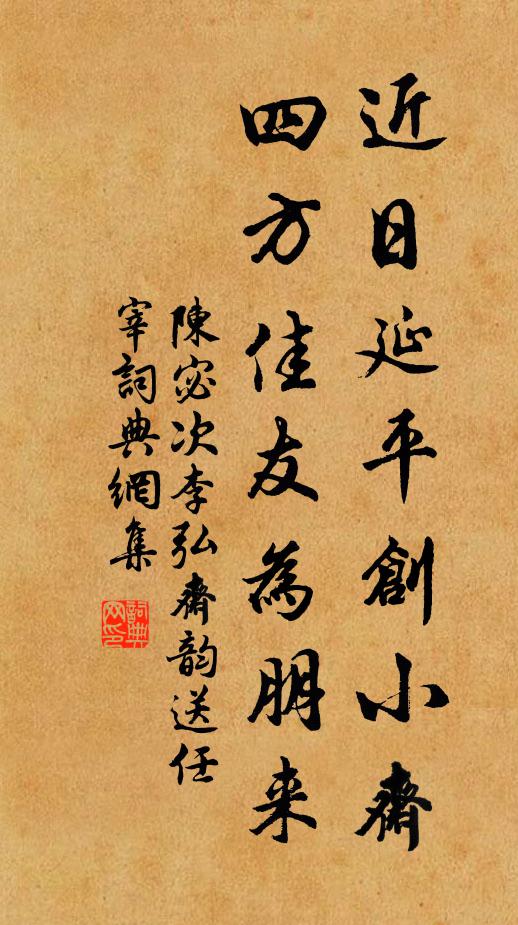 近日延平創小齋
四方佳友為朋来
陳宓次李弘齋韵送任
宰詞典網集
詞典
网印